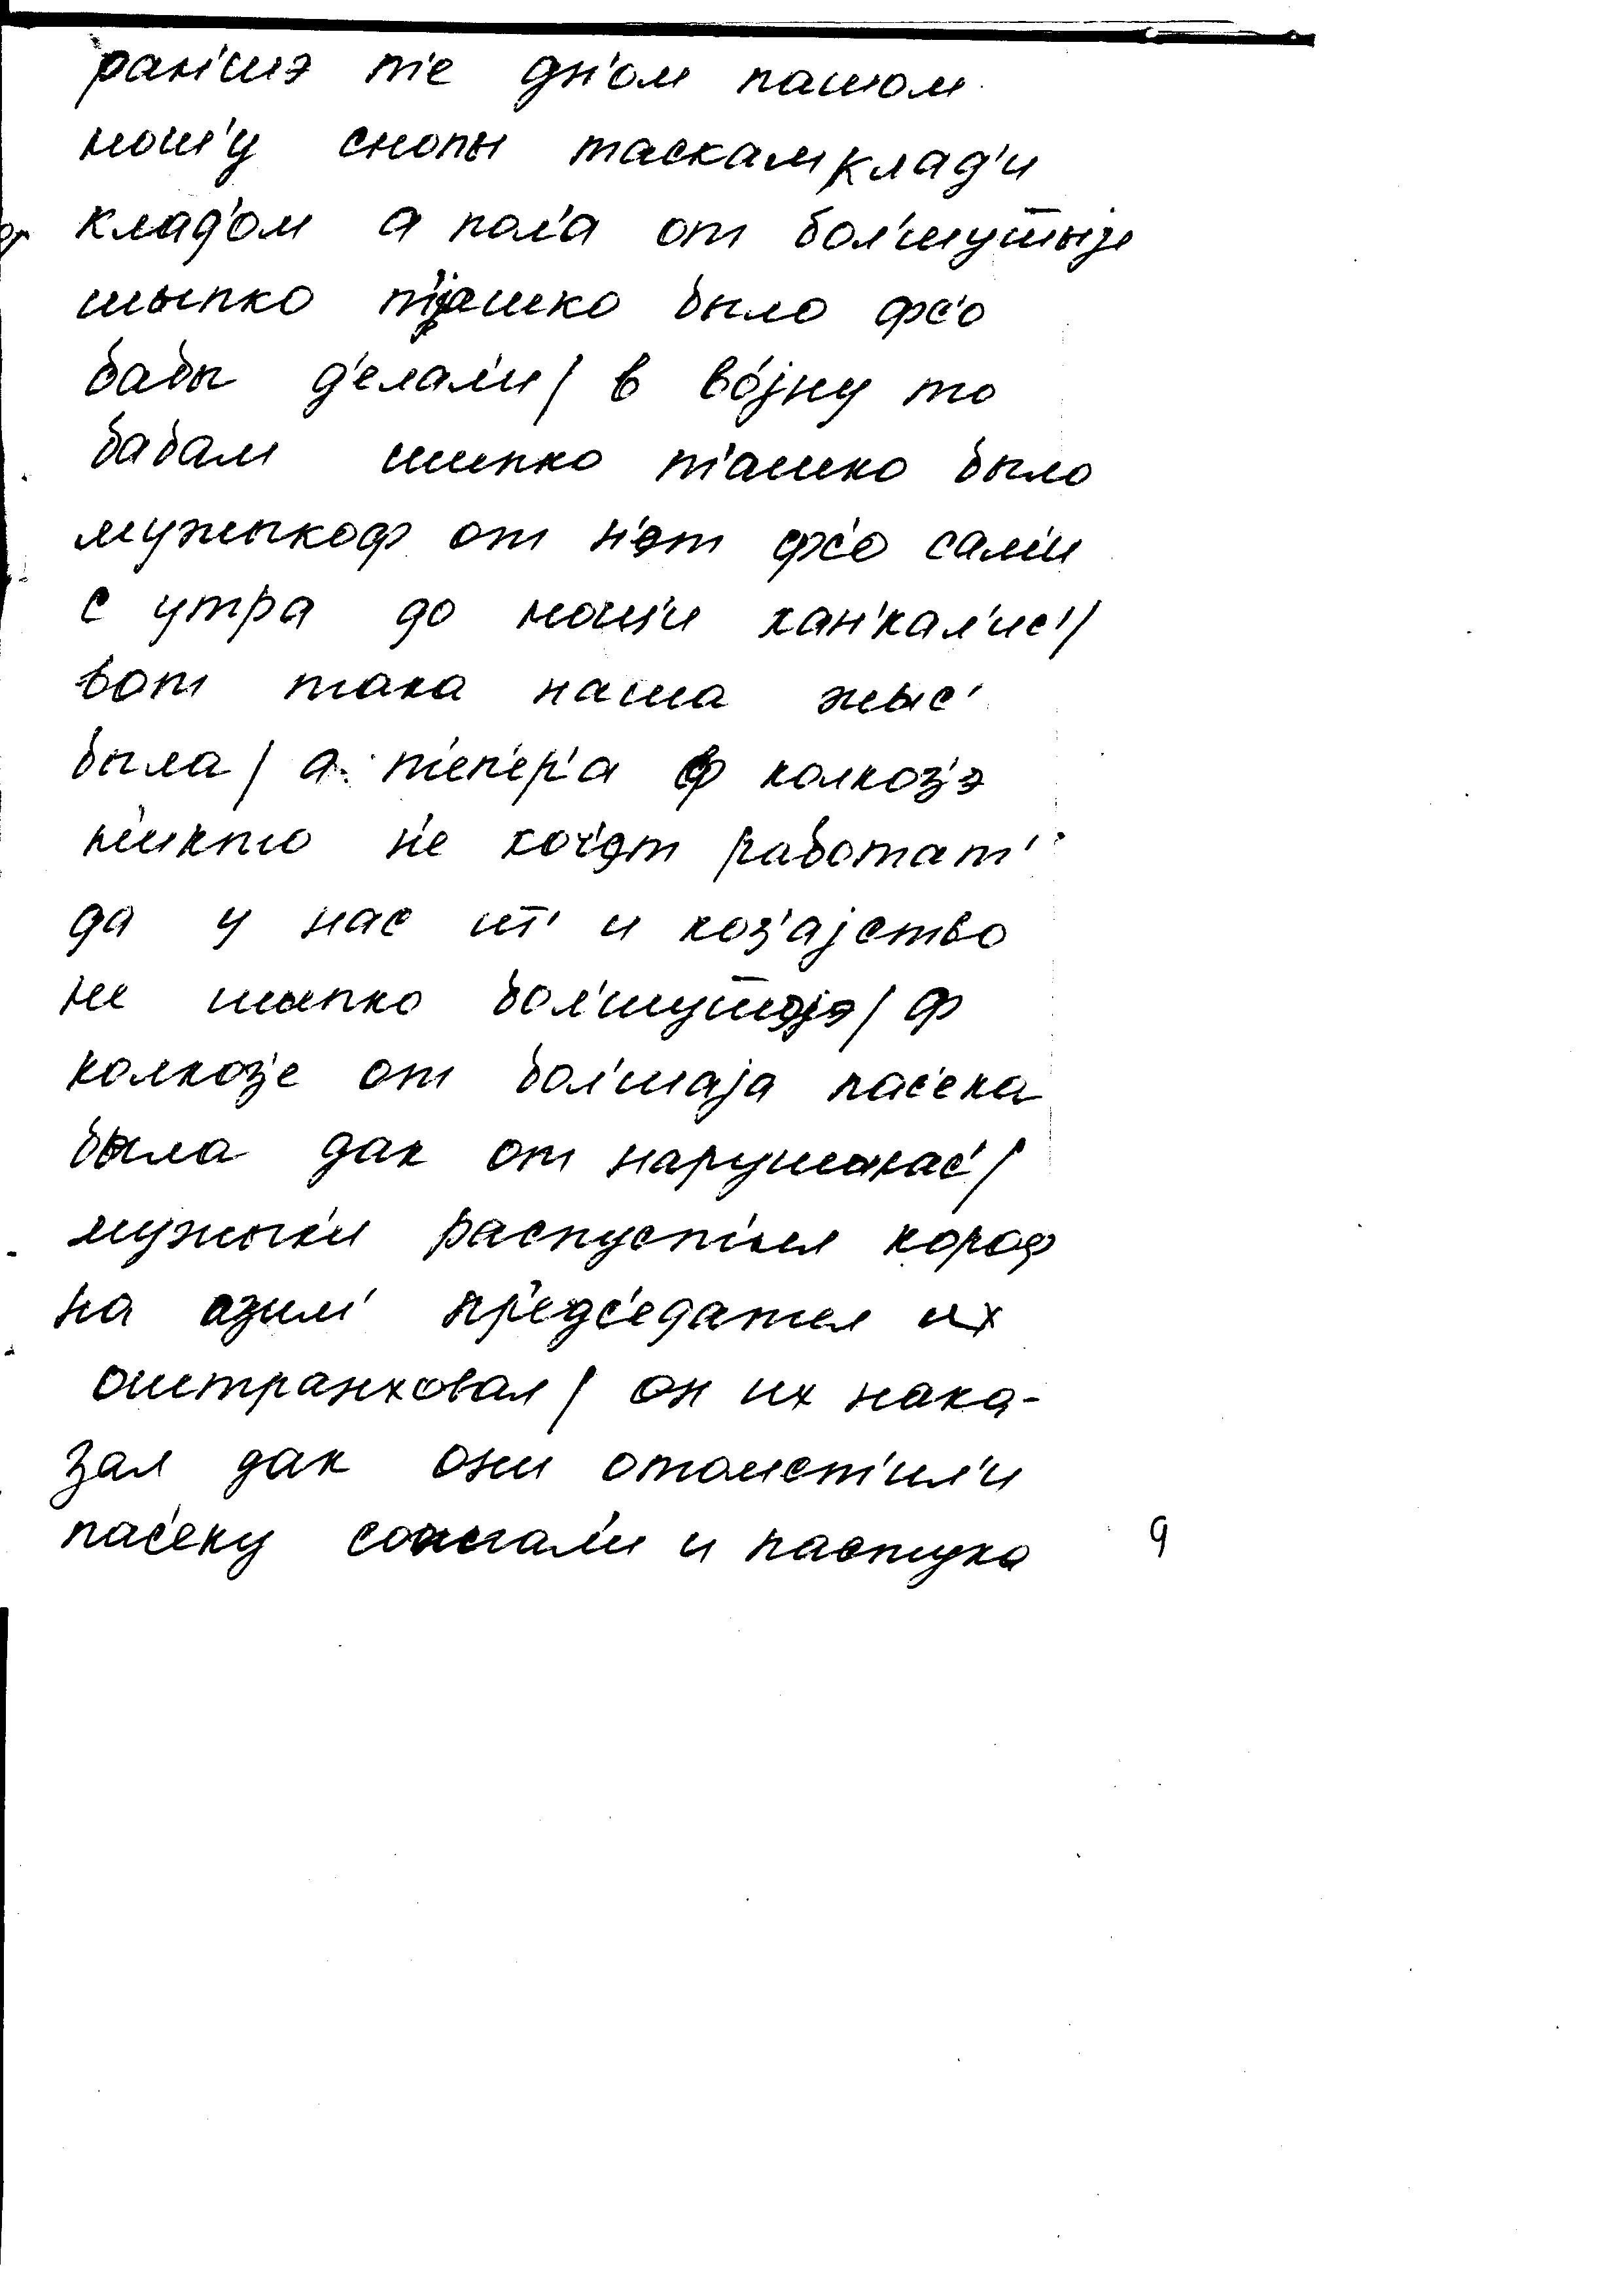 ран'шэ т'е дн'ом пашом
ноч'у снопы таскам клад'и
клад'ом а пол'а от бол'шут̅ыjи
шыпко т'ашко было фс'о
бабы д'елал'и / в воjну то
бабам шыпко т'ашко было
мужыкоф от н'эт фс'о сам'и
с утра до ноч'и хан'кал'ис' /
вот така наша жыс'
была / а т'еп'ер'а ф колхоз'э
н'икто н'е хоч'эт работат'
да у нас ит' и хоз'аjство
не шыпко бол'шут̅оjэ / ф
колхоз'е от бол'шаjа пас'ека
была дак от нарушылас' /
мужык'и распуст'ил короф
на озим' пр'едс'едател их
оштранховал / он их нака-
зал дак они отомст'ил'и
пас'еку сожгал'и и пастуха
9